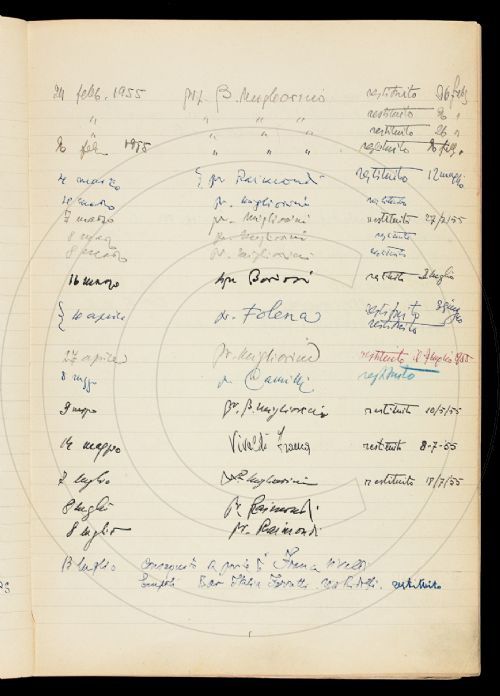 24 febb. 1955 prof. B. Migliorini restituito 26 febb.
" " " " restituito 26 "
" " " " restituito 26 "
26 feb 1955 " " " restituito 26 febb.
4 marzo { pr. Raimondi restituito 12 maggio
marzo pr. Migliorini restituito
7 marzo pr. Migliorini restituito 27/2/55
8 marzo pr. Migliorini restituito
8 marzo pr. Migliorini restituito
16 marzo restituito 2 luglio
{ 10 aprile pr. Folena restituito
restituito
27 aprile pr. Migliorini restituito il 7 luglio 1955
8 magg. restituito
9 magg. pr. B. Migliorini restituito 10/5/55
14 maggio Vivaldi Franca restituito 8-7-55
7 luglio Migliorini restituito 18/7/55
8 luglio pr. Raimondi
8 luglio pr. Raimondi
13 luglio Franca Vivaldi
Empoli Bar Italia restituito